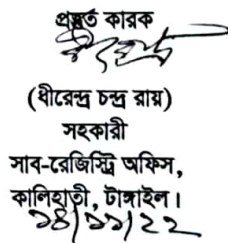 প্রস্তুত কারক
(ধীরেন্দ্র চন্দ্র রায়)
সহকারী
সাব-রেজিস্ট্রি অফিস,
কালিহাতী, টাঙ্গাইল।
১৪/১১/২২